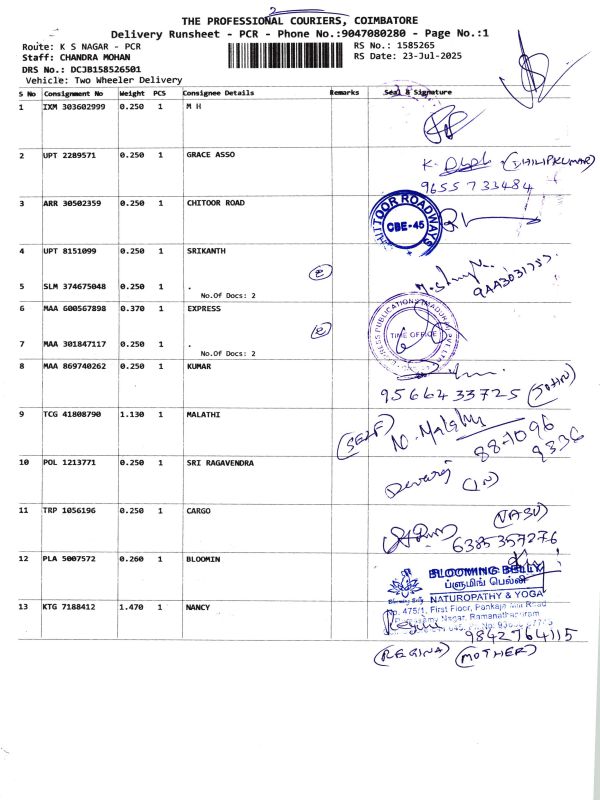 2
THE PROFESSIONAL COURIERS, COIMBATORE
Delivery Runsheet - PCR - Phone No.:9047080280 - Page No.:1
Route: K S NAGAR - PCR RS No.: 1585265
Staff: CHANDRA MOHAN RS Date: 23-Jul-2025
DRS No.: DCJB158526501
Vehicle: Two Wheeler Delivery
S No Consignment No Weight PCS Consignee Details Remarks Seal & Signature
1 IXM 303602999 0.250 1 M H
2 UPT 2289571 0.250 1 GRACE ASSO
K. (DHILIPKUMAR)
9655733484
3 ARR 30502359 0.250 1 CHITOOR ROAD
CHITTOOR ROADWAYS
CBE-45
4 UPT 8151099 0.250 1 SRIKANTH
5 SLM 374675048 0.250 1 .
No.Of Docs: 2
6 MAA 600567898 0.370 1 EXPRESS
TIME OFFICE
7 MAA 301847117 0.250 1 .
No.Of Docs: 2
8 MAA 869740262 0.250 1 KUMAR
9566433725 (JOHN)
9 TCG 41808790 1.130 1 MALATHI
(SELF) N. Malathi
10 POL 1213771 0.250 1 SRI RAGAVENDRA
Devaraj
11 TRP 1056196 0.250 1 CARGO
(VASU)
6385357276
12 PLA 5007572 0.260 1 BLOOMIN
BLOOMING BELLY
ப்ளுமிங் பெல்லி
Blooming Belly NATUROPATHY & YOGA
No. 475/1, First Floor, Pankaja Mill Road
Nagar, Ramanathapuram
13 KTG 7188412 1.470 1 NANCY
Regina 9842764115
(REGINA) (MOTHER)